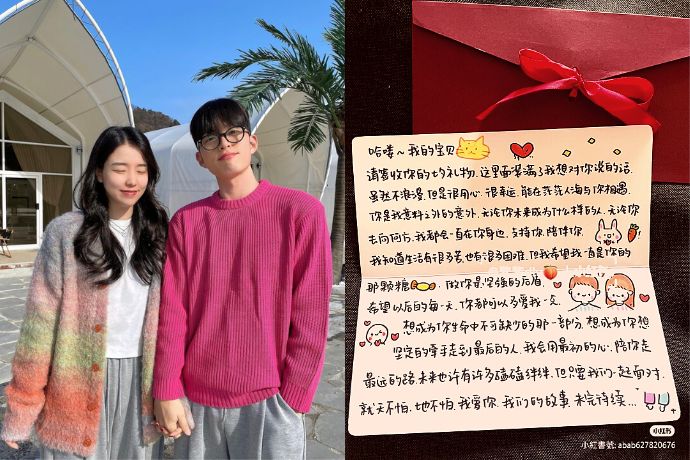 哈喽~我的宝贝
请查收你的七夕礼物.这里面装满了我想对你说的话.
虽然不浪漫.但是很用心.很幸运.能在茫茫人海与你相遇.
你是我意料之外的意外.无论你未来成为什么样的人.无论你
去向何方.我都会一直在你身边.支持你.陪伴你.
我知道生活有很多苦.也有很多困难.但我希望我一直是你的
那颗糖 .做你最坚强的后盾.
希望以后的每一天.你都可以多爱我一点
想成为你生命中不可缺少的那一部分.想成为你想
坚定的牵手走到最后的人.我会用最初的心.陪你走
最远的路.未来也许有许多磕磕绊绊.但只要我们一起面对.
就天不怕.地不怕.我爱你.我们的故事.未完待续...
小红书
小紅書號: abab627820676